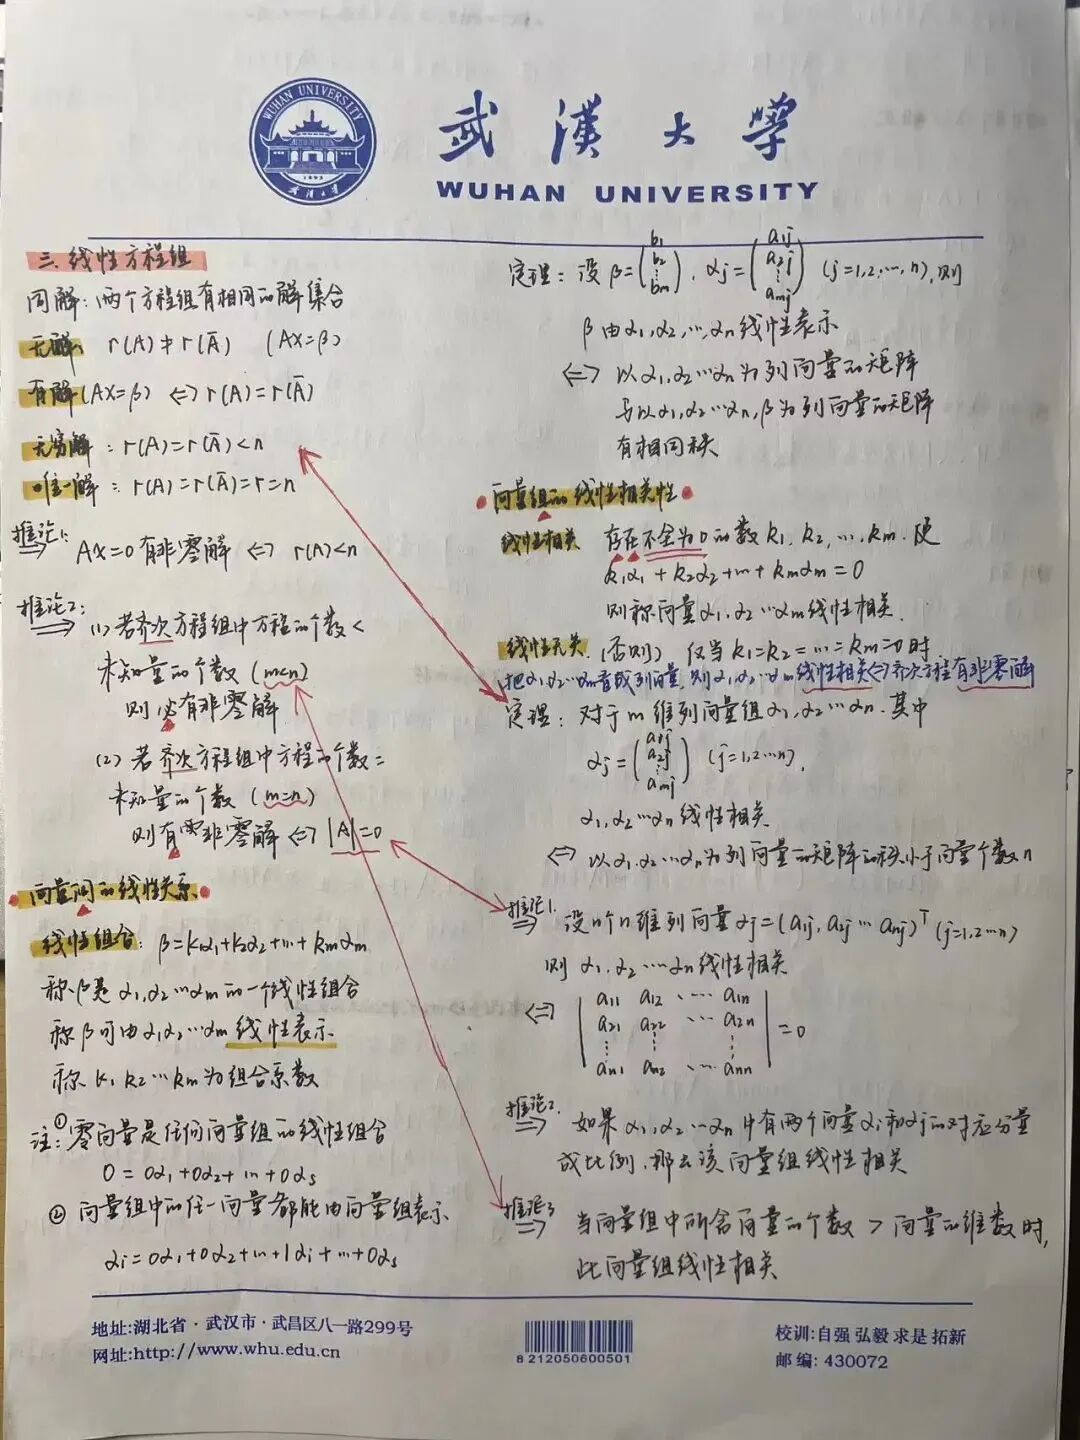 WUHAN UNIVERSITY
1893
武汉大学
武漢大學
WUHAN UNIVERSITY
三.线性方程组
同解:两个方程组有相同的解集合
无解: r(A)≠r(Ā) (AX=β)
有解(AX=β) ⇔ r(A)=r(Ā)
无穷解: r(A)=r(Ā)<n
唯一解: r(A)=r(Ā)=r=n
推论1: ⇒ AX=0有非零解 ⇔ r(A)<n
推论2: ⇒ (1)若齐次方程组中方程的个数<
未知量的个数(m<n)
则必有非零解
(2)若齐次方程组中方程的个数=
未知量的个数(m=n)
则有非零解 ⇔ |A|=0
向量间的线性关系
线性组合: β=k₁α₁+k₂α₂+…+kmαm
称β是α₁,α₂…αm的一个线性组合
称β可由α₁α₂…αm线性表示
称k₁ k₂…km为组合系数
注:①零向量是任何向量组的线性组合
0=0α₁+0α₂+…+0αs
②向量组中的任一向量都能由向量组表示
αi=0α₁+0α₂+…+1αi+…+0αs
定理:设β=(b₁ b₂ ⋮ bm),αj=(a1j a2j ⋮ amj) (j=1,2,…,n),则
β由α₁,α₂,…,αn线性表示
⇔ 以α₁,α₂…αn为列向量的矩阵
与以α₁,α₂…αn,β为列向量的矩阵
有相同秩
向量组的线性相关性
线性相关 存在不全为0的数k₁,k₂,…,km,使
k₁α₁+k₂α₂+…+kmαm=0
则称向量α₁,α₂…αm线性相关.
线性无关.(否则) 仅当k₁=k₂=…=km=0时
把α₁,α₂…αm看成列向量,则α₁,α₂…αm线性相关⇔齐次方程有非零解
定理:对于m维列向量组α₁,α₂…αn.其中
αj=(a1j a2j ⋮ amj) (j=1,2…n),
α₁,α₂…αn线性相关
⇔ 以α₁,α₂…αn为列向量的矩阵的秩小于向量个数n
推论1. ⇒ 设n个n维列向量αj=(a1j,a2j…anj)ᵀ (j=1,2…n)
则α₁,α₂…αn线性相关
⇔ | a11 a12 … a1n
a21 a22 … a2n
⋮ ⋮ ⋮
an1 an2 … ann | =0
推论2. ⇒ 如果α₁,α₂…αn中有两个向量αi和αj的对应分量
成比例,那么该向量组线性相关
推论3 ⇒ 当向量组中所含向量的个数>向量的维数时,
此向量组线性相关
地址:湖北省·武汉市·武昌区八一路299号
网址:http://www.whu.edu.cn
8 212050600501
校训:自强 弘毅 求是 拓新
邮编: 430072